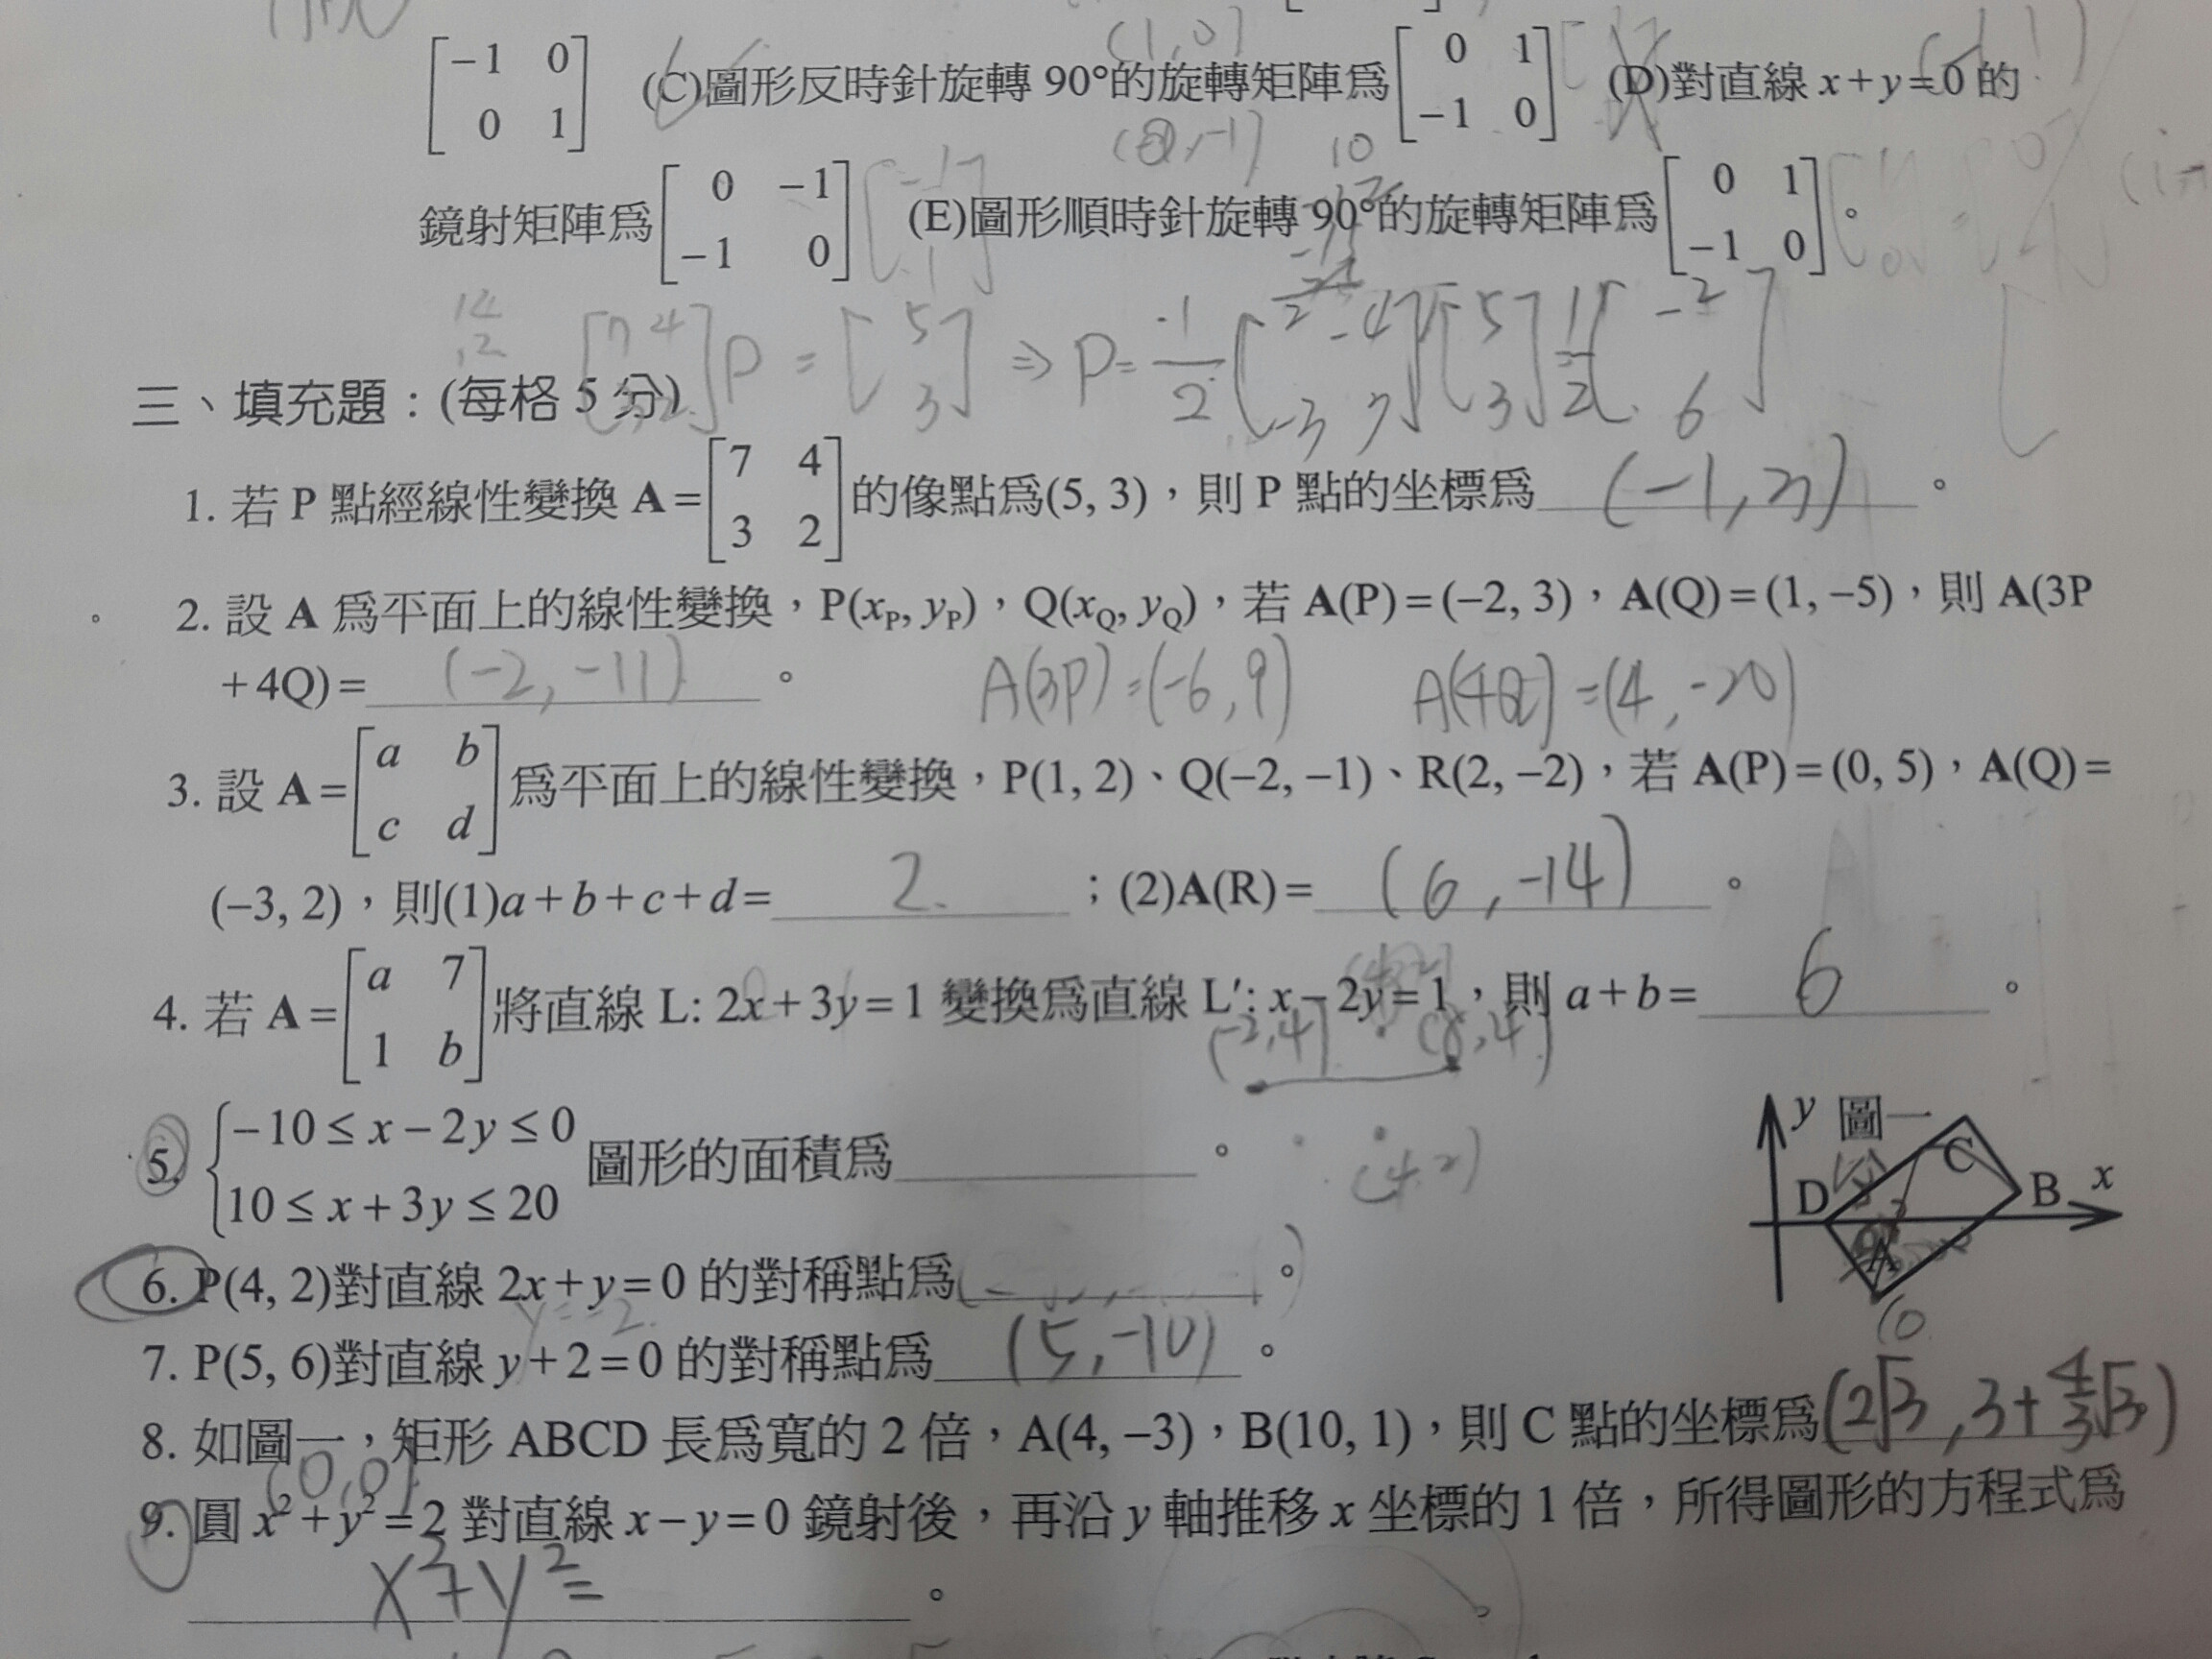 [-1 0; 0 1] (C)圖形反時針旋轉 90°的旋轉矩陣為[0 1; -1 0] (D)對直線 x+y=0 的
(1,0)
(0,-1)
鏡射矩陣為[0 -1; -1 0] (E)圖形順時針旋轉 90°的旋轉矩陣為[0 1; -1 0]。
[7 4; 3 2] P = [5; 3] ⇒ P = -1/2 [2 -4; -3 7] [5; 3] = 1/2 [-2; 6]
三、填充題:(每格 5 分)
1. 若 P 點經線性變換 A=[7 4; 3 2]的像點為(5, 3),則 P 點的坐標為 (-1, 3) 。
2. 設 A 為平面上的線性變換,P(xP, yP),Q(xQ, yQ),若 A(P)=(−2, 3),A(Q)=(1, −5),則 A(3P
+4Q)= (-2, -11) 。 A(3P)=(-6, 9) A(4Q)=(4, -20)
3. 設 A=[a b; c d]為平面上的線性變換,P(1, 2)、Q(−2, −1)、R(2, −2),若 A(P)=(0, 5),A(Q)=
(−3, 2),則(1)a+b+c+d= 2. ;(2)A(R)= (6, -14) 。
4. 若 A=[a 7; 1 b]將直線 L: 2x+3y=1 變換為直線 L′: x−2y=1,則 a+b= 6 。
(-2,4) (8,4)
5. {−10≤x−2y≤0
10≤x+3y≤20 圖形的面積為 。
(4,2)
y 圖一
C
D B x
A
6. P(4, 2)對直線 2x+y=0 的對稱點為 。
y=-2.
7. P(5, 6)對直線 y+2=0 的對稱點為 (5, -10) 。
8. 如圖一,矩形 ABCD 長為寬的 2 倍,A(4, −3),B(10, 1),則 C 點的坐標為 (2√3, 3+4/3√3)
(0,0)
9. 圓 x²+y²=2 對直線 x−y=0 鏡射後,再沿 y 軸推移 x 坐標的 1 倍,所得圖形的方程式為
x²+y²= 。